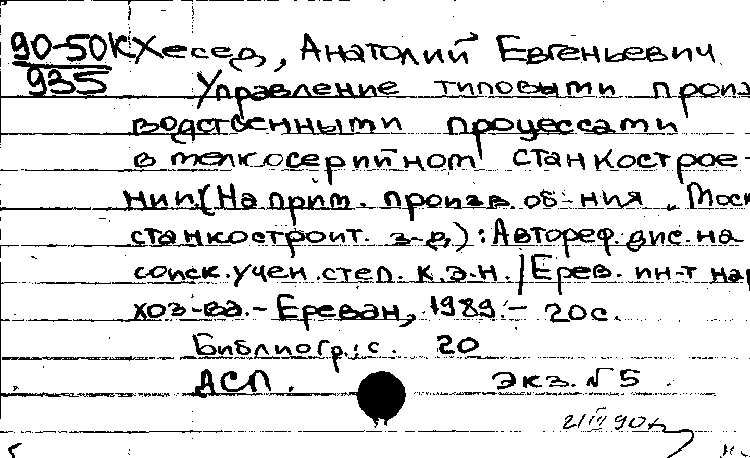 90-50К Хесед, Анатолий Евгеньевич
935 Управление типовыми произ
водственными процессами
в мелкосерийном станкострое-
нии (На прим. произв. об-ния „Моск
станкостроит. з-д): Автореф. дис. на
соиск. учен. степ. к.э.н. / Ерев. ин-т нар
хоз-ва. - Ереван, 1989. - 20 с.
Библиогр.: с. 20
АСП. Экз. N 5.
21 III 90г